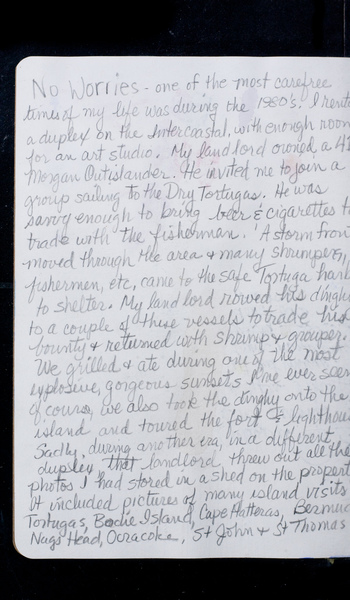 No Worries - one of the most carefree
times of my life was during the 1980's. I rente
a duplex on the Intercoastal, with enough room
for an art studio. My landlord owned a 41
Morgan Outislander. He invited me to join a
group sailing to the Dry Tortugas. He was
savvy enough to bring beer & cigarettes t
trade with the fisherman. A storm fron
moved through the area & many shrimpers,
fishermen, etc, came to the safe Tortuga harb
to shelter. My landlord rowed his dinghy
to a couple of these vessels to trade his
bounty & returned with shrimp & grouper.
We grilled & ate during one of the most
explosive, gorgeous sunsets I've ever seen
Of course, we also took the dinghy onto the
island and toured the fort & lighthous
Sadly, during another era, in a different
duplex that landlord, threw out all the
photos I had stored in a shed on the propert
It included pictures of many island visits
Tortugas, Bodie Island, Cape Hatteras, Bermud
Nags Head, Ocracoke, St John & St Thomas